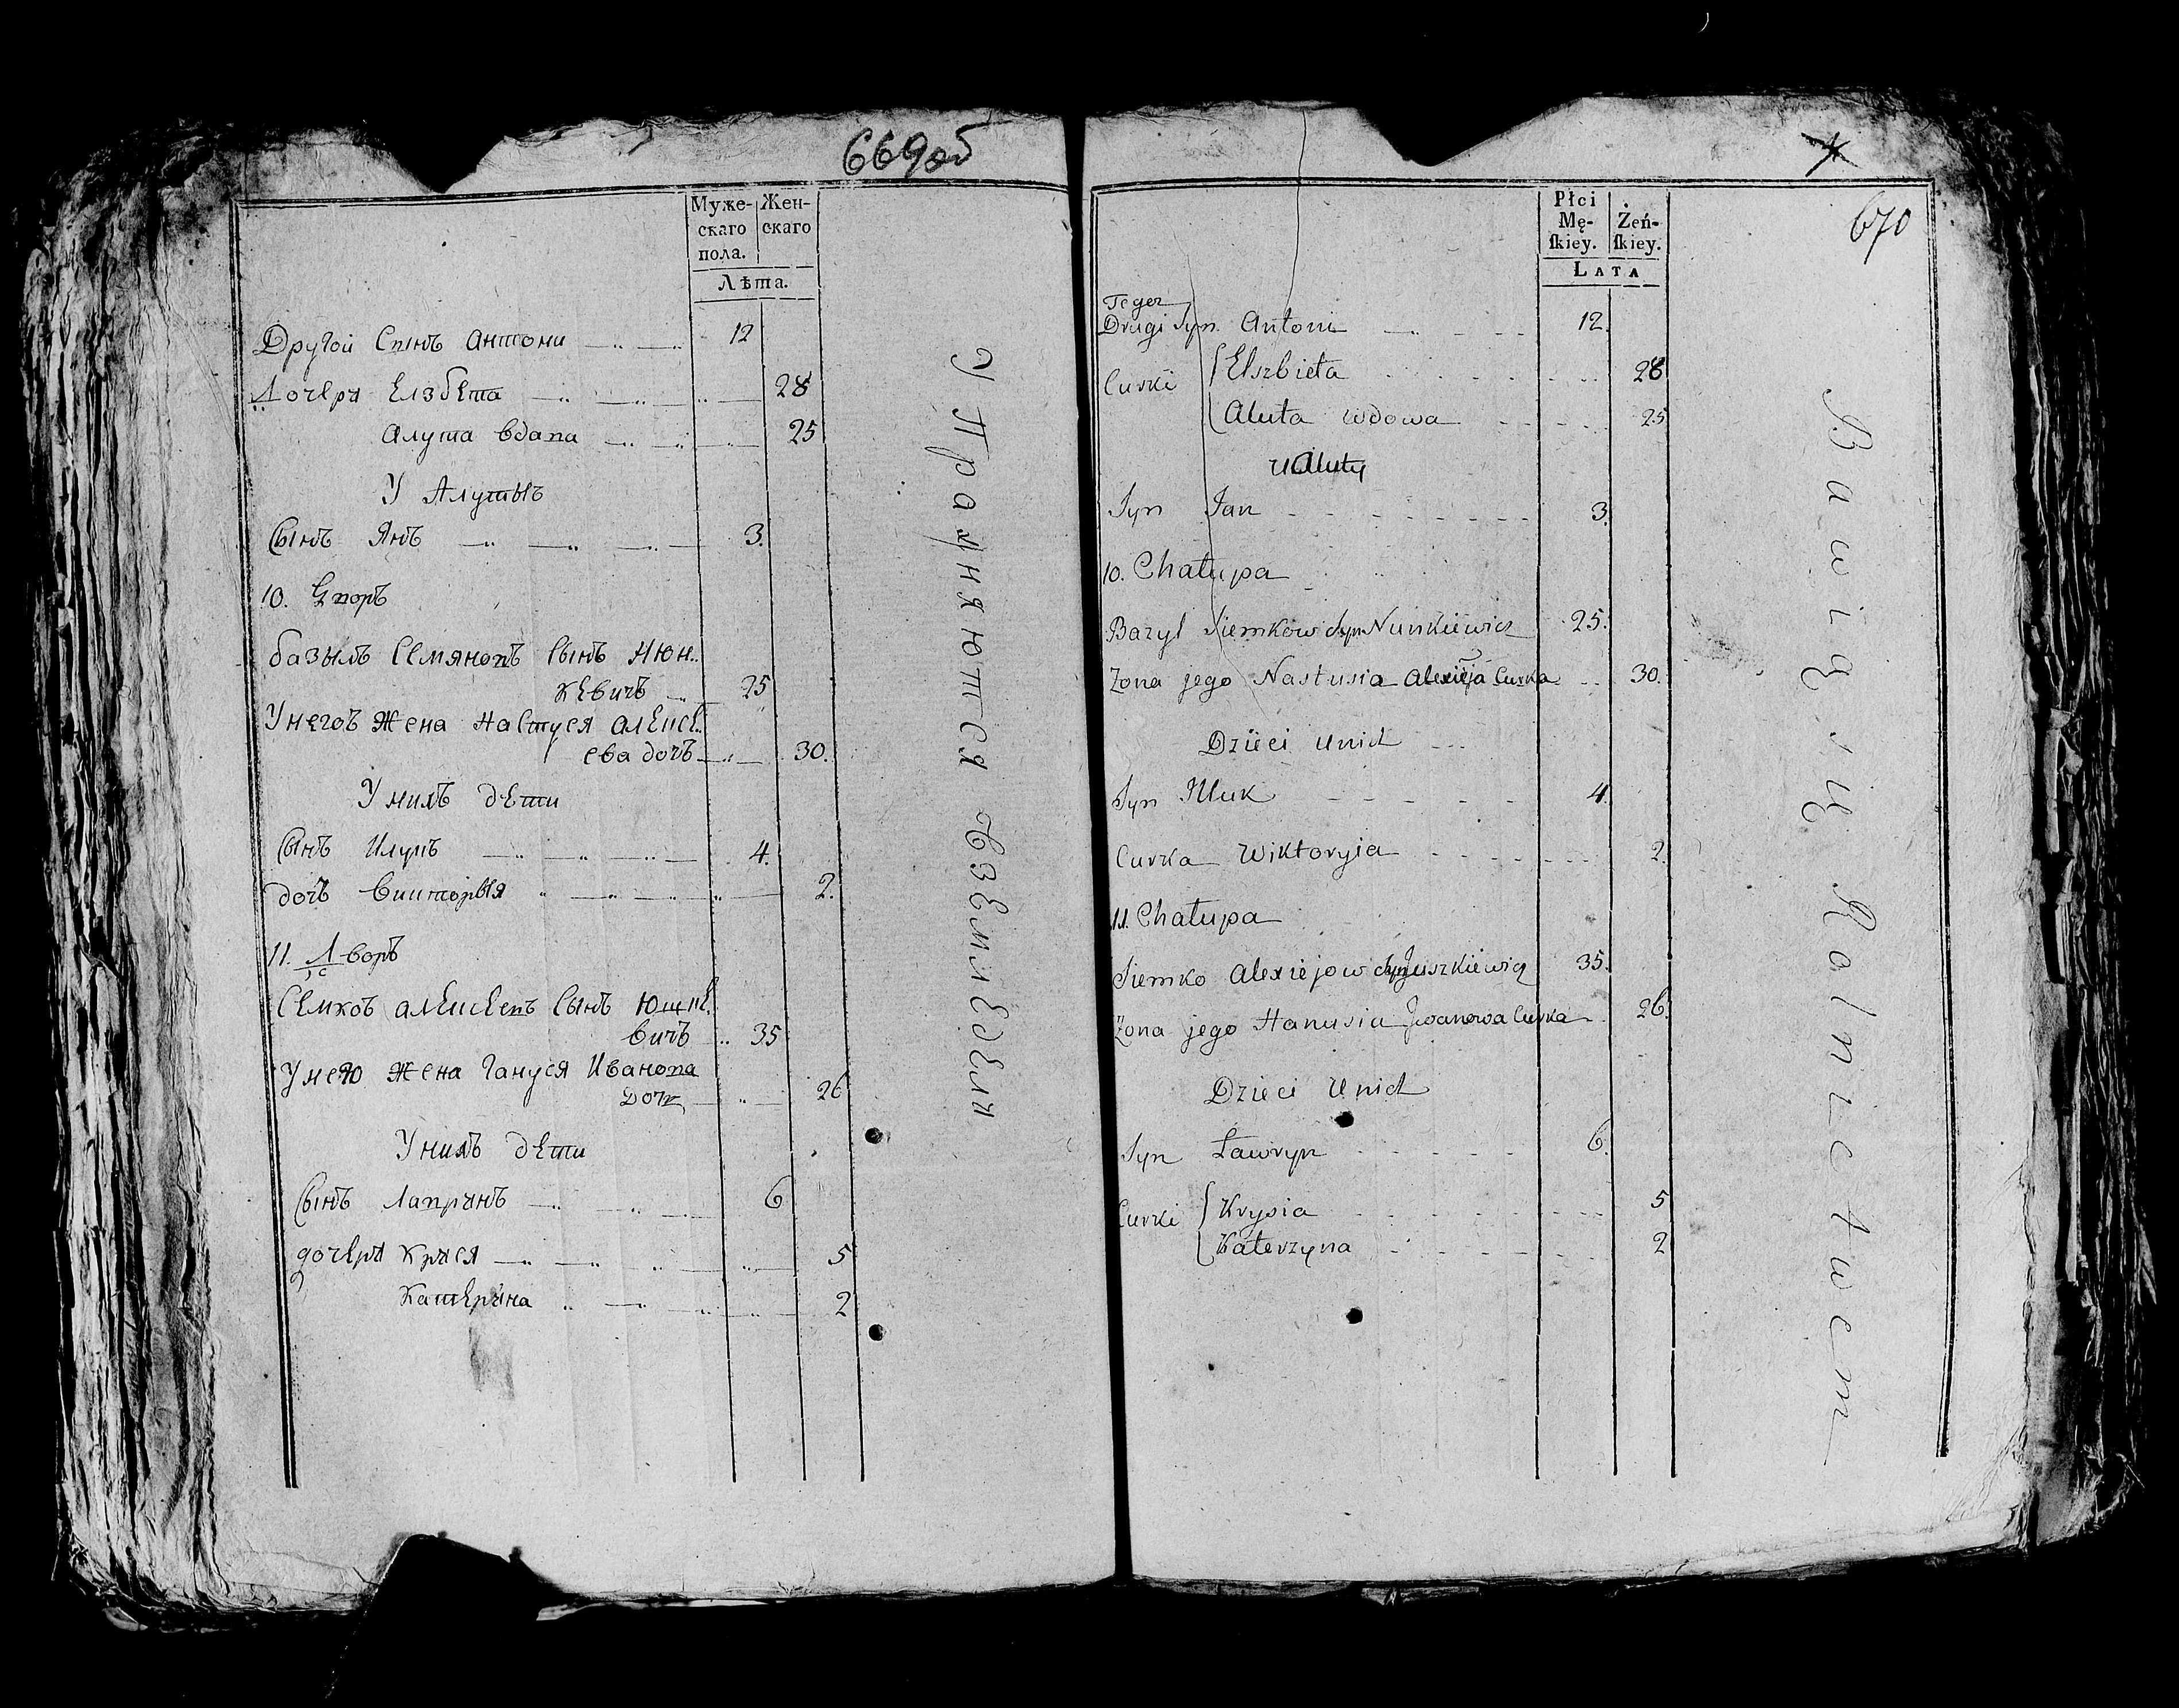 669об
Муже-
скаго
пола.
Жен-
скаго
Лѣта.
Другой Сынъ Антони 12
Дочеря Елзбета 28
Алута вдапа 25
У Алутыъ
Сынъ Янъ 3.
10. Дпоръ
базылъ Семянопъ Сынъ Нюн..
кевичъ 25
У негоъ Жена Настуся Алексе..
ева дочъ 30.
У нихъ дети
Сынъ Илукъ 4.
дочъ Викторыя 2.
11. Дворъ
Семкоъ Алексеепъ Сынъ Юшке.
вичъ 35
У него Жена Гануся Иванопа
Дочъ 26
У нихъ дети
Сынъ Лапрынъ 6
дочеря Крыся 5
Катерына 2
Упражняются взємледеля
670
Płci
Mę-
ſkiey.
Żeń-
ſkiey.
LATA
Tegez
Drugi Syn Antoni 12.
Curki Elszbieta 28
Aluta wdowa 25
u Aluty
Syn Jan 3.
10. Chałupa
Bazyl Siemkow Syn Nunkiewicz 25.
Zona jego Nastusia Alexieja Curka 30.
Dzieci u nich
Syn Iluk 4.
Curka Wiktoryia 2.
11. Chałupa
Siemko Alexiejow Syn Juszkiewicz 35.
Zona jego Hanusia Jwanowa Curka 26.
Dzieci u nich
Syn Ławryn 6.
Curki Krysia 5
Katerzyna 2
Bawią się Rolnictwem